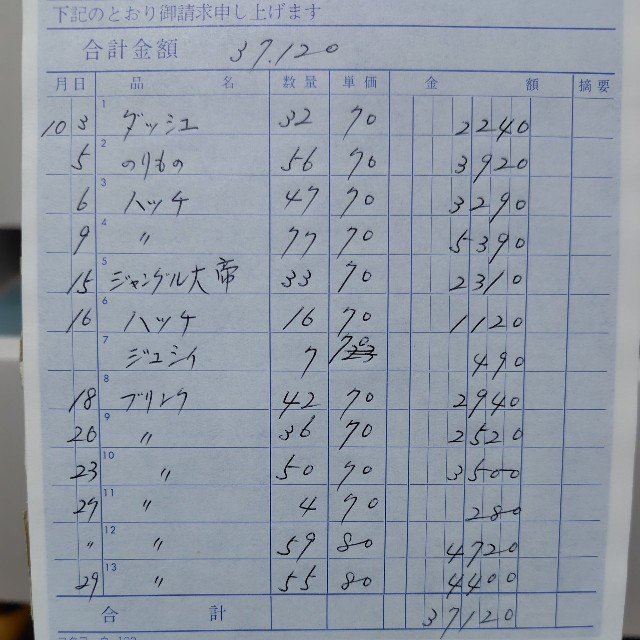 下記のとおり御請求申し上げます
合計金額 37.120
月日 品名 数量 単価 金額 摘要
10 3 1 ダッシュ 32 70 2240
5 2 のりもの 56 70 3920
6 3 ハッチ 47 70 3290
9 4 〃 77 70 5390
15 5 ジャングル大帝 33 70 2310
16 6 ハッチ 16 70 1120
7 ジュシイ 7 70 490
18 8 ブリンク 42 70 2940
20 9 〃 36 70 2520
23 10 〃 50 70 3500
27 11 〃 4 70 280
〃 12 〃 59 80 4720
29 13 〃 55 80 4400
合計 37120